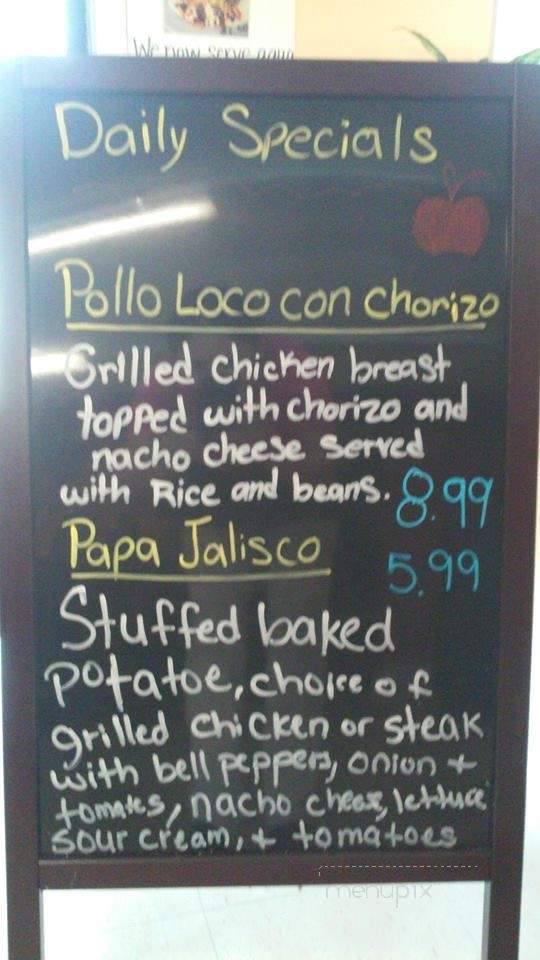 We now serve agua
Daily Specials
Pollo Loco con chorizo
Grilled chicken breast
topped with chorizo and
nacho cheese served
with Rice and beans. 8.99
Papa Jalisco
5.99
Stuffed baked
potatoe, choice of
grilled chicken or steak
with bell peppers, onion +
tomates, nacho cheese, lettuce
sour cream, + tomatoes
menupix